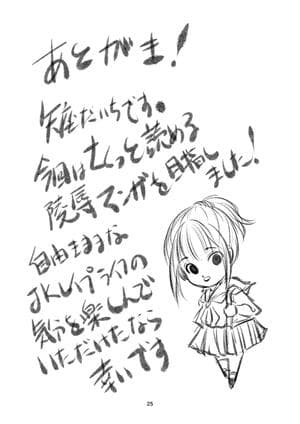 あとがき!
矢座だいちです。
今回はさくっと読める
陵辱マンガを目指しました!
自由きままな
JKレイプライフの
気分を楽しんで
いただけたなら
幸いです
25